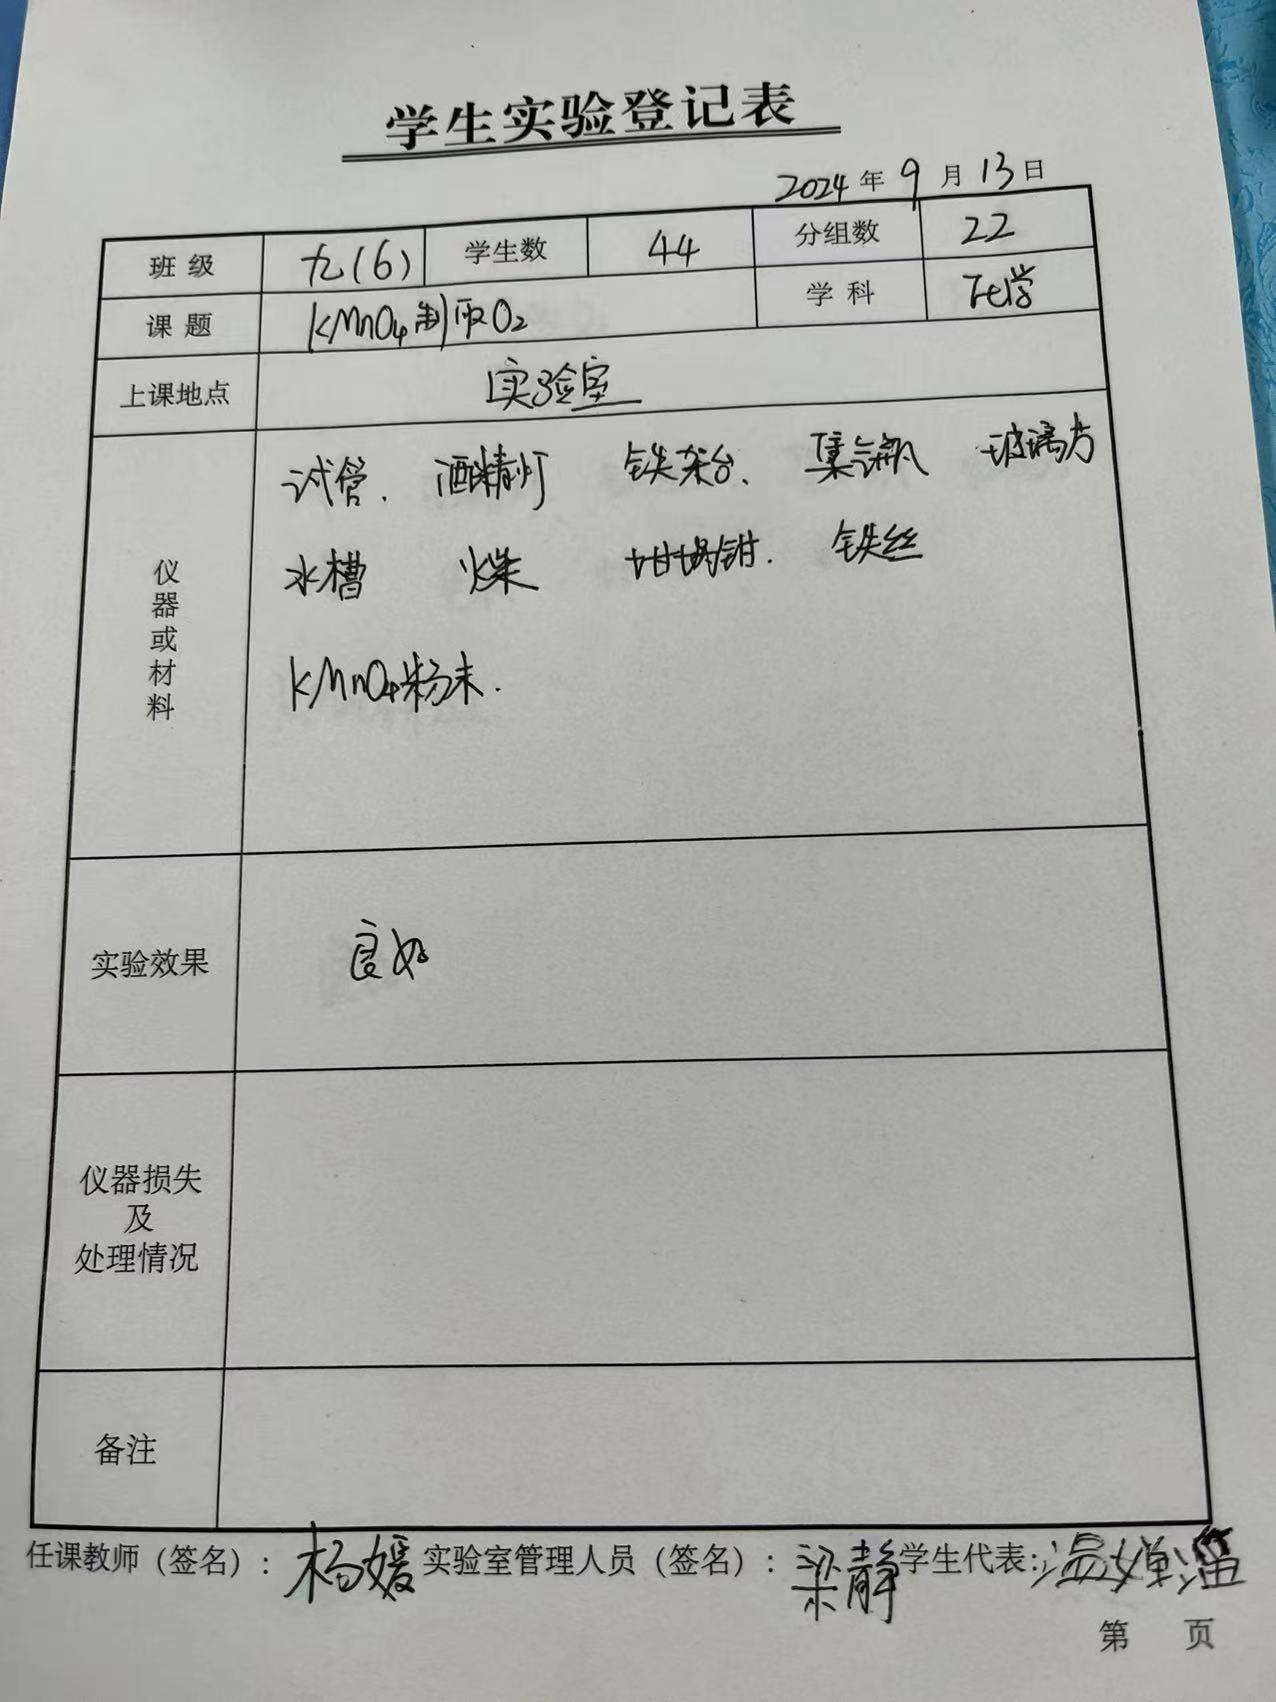 学生实验登记表
2024年9月13日
班级 九(6) 学生数 44 分组数 22
课题 KMnO4制取O2 学科 化学
上课地点 实验室
仪器或材料
试管. 酒精灯 铁架台、 集气瓶 玻璃片
水槽 火柴 坩埚钳. 铁丝
KMnO4粉末.
实验效果 良好
仪器损失
及
处理情况
备注
任课教师（签名）: 杨媛 实验室管理人员（签名）: 梁静 学生代表:
第 页